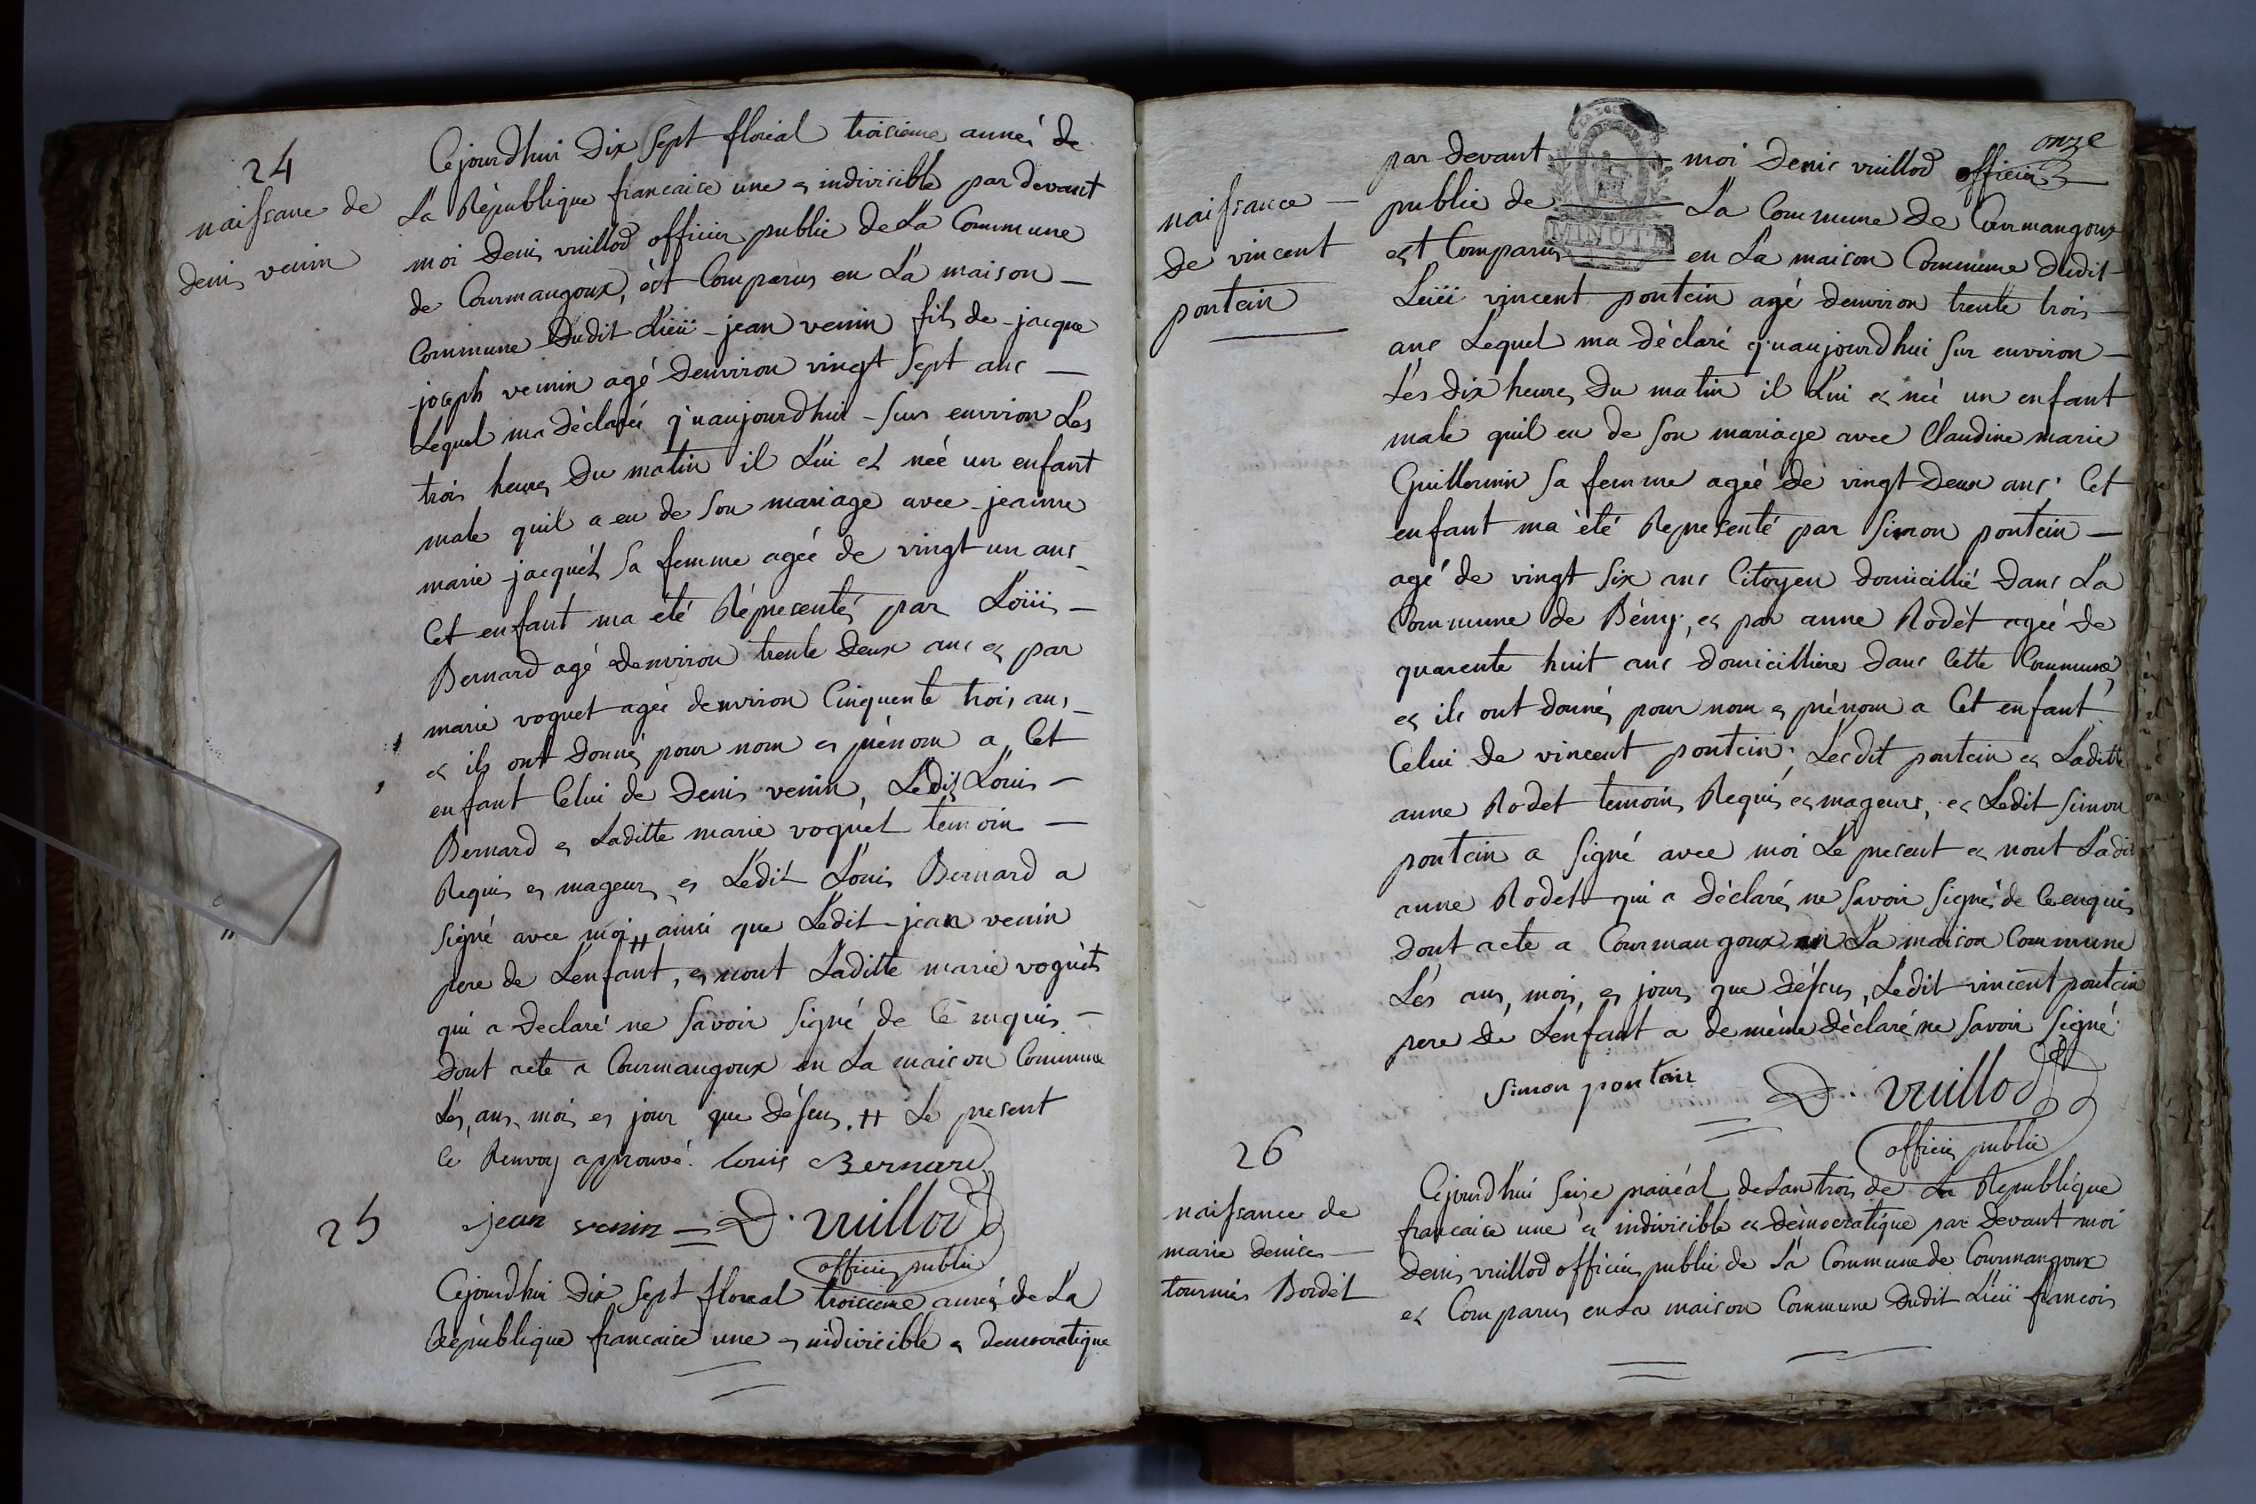 24
naissance de
denis venin
Cejourdhui dix sept floréal troisieme anneé de
La République francaise une et indivisible par devant
moi denis vuillod officier public de La Commune
de Courmangoux, est Comparus en La maison
Commune dudit Lieü jean venin fils de jacque
joseph vennin agé denviron vingt sept ans
Lequel ma déclaré q'uaujourdhui sur environ Les
trois heures du matin il Lui et neé un enfant
male quil a eu de son mariage avec jeanne
marie jacquet sa femme ageé de vingt un ans
Cet enfant ma été Répresenté par Loüis
Bernard agé denviron trente deux ans et par
marie voquet ageé denviron Cinquente trois ans
et ils ont donné pour nom et prénom a Cet
enfant Celui de Denis venin, Ledit Louis
Bernard et Laditte marie voquet temoin
Requis et mageurs, et Ledit Louis Bernard a
signé avec moi # ainsi que Ledit jean venin
pere de Lenfant, et nont Laditte marie voquet
qui a declaré ne savoir signé de Ce enquis
dont acte a Courmangoux en La maison Commune
Les, ans, mois et jour que déssus. # Le present
Ce Renvoy approuvé. Louis Bernard
jean venin D. vuillod
officier public
25
Cejourdhui dix sept floreal troisieme anneé de La
République francaise une et indivisible et democratique
onze
naissance
de vincent
pontein
par devant moi Denis vuillod officier
public de La Commune de Courmangoux
est Comparus en La maison Commune dudit
MINUTE
Leiü vincent pontein agé denviron trente trois
ans Lequel ma déclaré q'uaujourdhui sur environ
Les dix heures du matin il Lui et neé un enfant
male quil eu de son mariage avec Claudine marie
Guillermin sa femme ageé de vingt deux ans. Cet
enfant ma été Representé par Simon pontein
agé de vingt six ans Citoyen domicillié dans La
Commune de Bény, et par anne Rodet ageé de
quarente huit ans domicilliere dans Cette Commune
et ils ont donnés pour nom et prénom a Cet enfant
Celui de vincent pontein. Lesdit pontein et Laditte
anne Rodet temoins Requis et mageurs, et Ledit simon
pontein a signé avec moi Le present et nont Ladit
anne Rodet qui a déclaré ne savoir signé de Ce enquis
dont acte a Courmangoux en La maison Commune
Les ans, mois, et jours que déssus, Ledit vincent pontein
pere de Lenfant a de même déclaré ne savoir signé
simon pontein D. vuillod
officier public
26
naissance de
marie denise
tournier Bordet
Cejourdhui seize prairéal de Lan trois de La Republique
francaise une et indivisible et démocratique par devant moi
Denis vuillod officier public de La Commune de Courmangoux
et Comparus en La maison Commune dudit Lieü francois